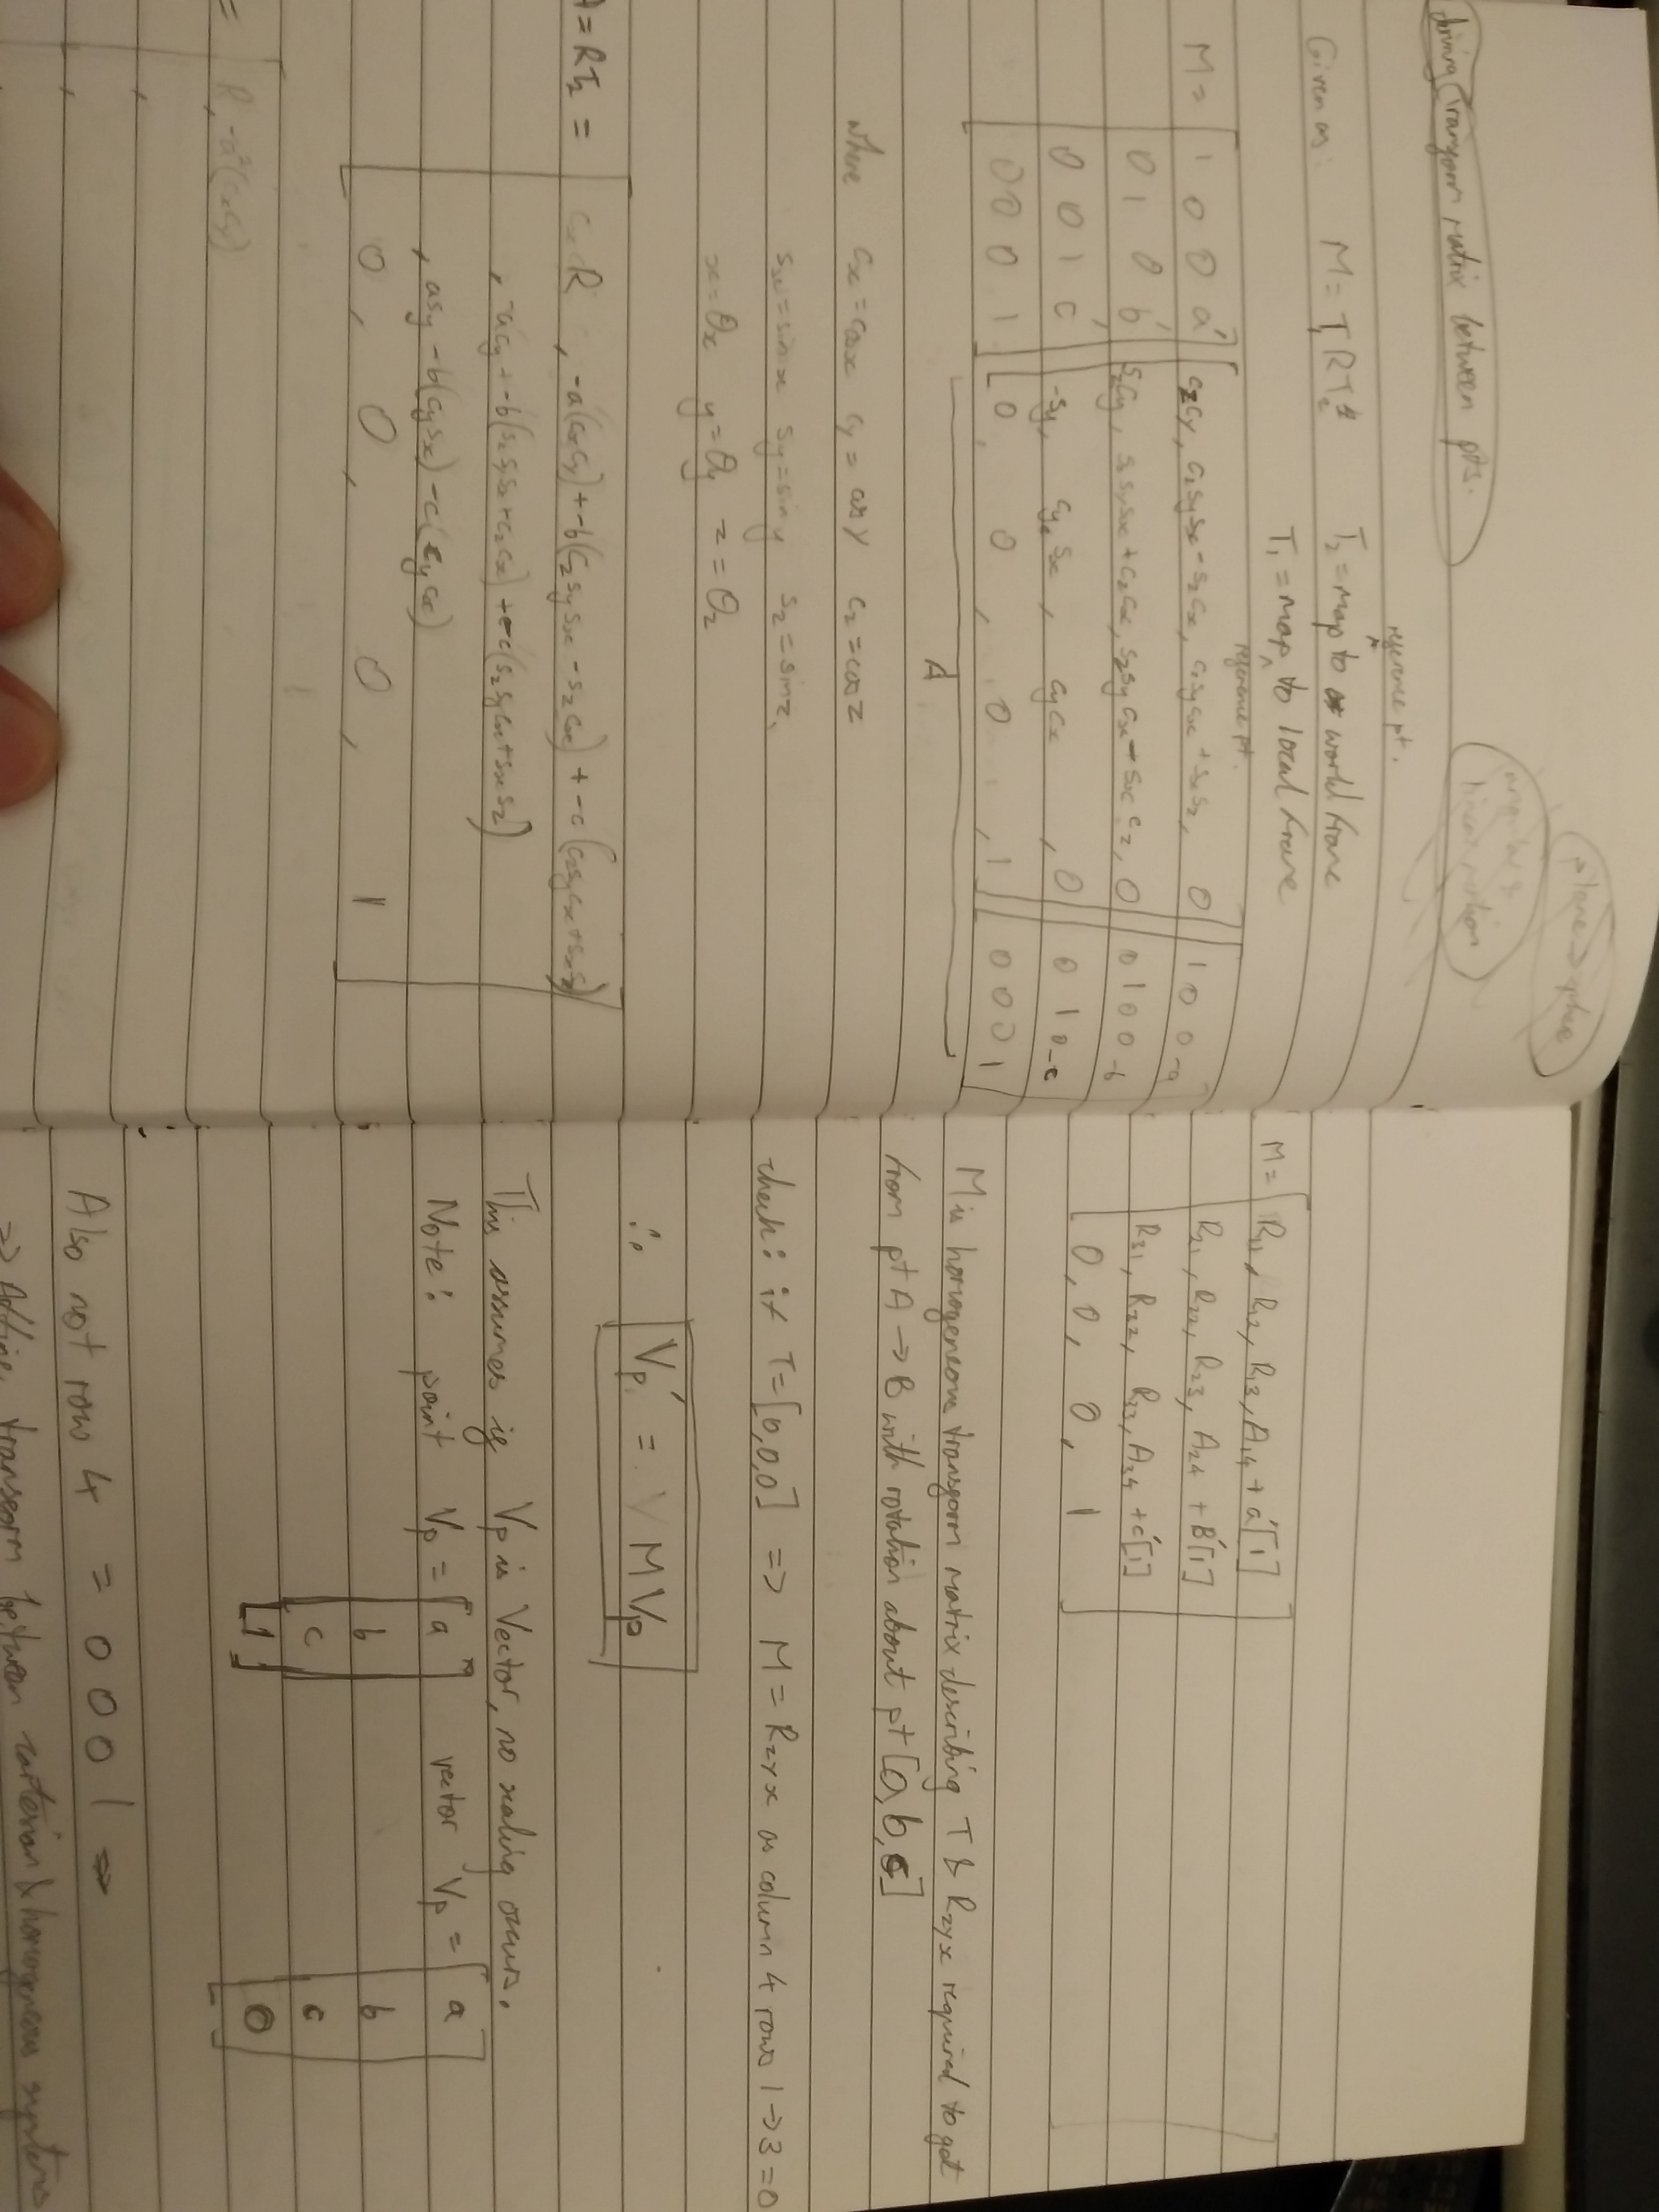 plane → sphere
angular &
linear motion
deriving transform matrix between pts.
reference pt.
Given as: M = T₁RT₂ T₂ = map to world frame
T₁ = map to local frame
reference pt.
M = [1 0 0 a′] [czcy, czsysx - szcx, czsycx + sxsz, 0] [1 0 0 -a]
[0 1 0 b′] [szcy, szsysx + czcx, szsycx - sxcz, 0] [0 1 0 0 -b]
[0 0 1 c′] [-sy, cysx, cycx, 0] [0 1 0 -c]
[0 0 0 1] [0, 0, 0, 1] [0 0 0 1]
A
where cx = cosx cy = cosy cz = cosz
sx = sinx sy = siny sz = sinz,
x = θx y = θy z = θz
A = RT₂ = [R, -a(cxcy) + -b(czsysx - szcx) + -c(czsycx + sxsz)]
, -acy + -b(szsysx + czcx) + -c(szsycx + sxsz)
, asy - b(cysx) - c(cycx)
0, 0, 0, 1
= [R, -a²(cxcy)
M = [R11, R12, R13, A14 + a′[1]
R21, R22, R23, A24 + B′[1]
R31, R32, R33, A34 + c′[1]
0, 0, 0, 1]
M is homogeneous transform matrix describing T & Rzyx required to get
from pt A → B with rotation about pt [a, b, c]
check: if T = [0,0,0] => M = Rzyx as column 4 rows 1 → 3 = 0
∴ Vp′ = M Vp
This assumes if Vp is Vector, no scaling occurs.
Note: point Vp = [a vector Vp = [a
b b
c c
1] 0]
Also not row 4 = 0 0 0 1 =>
=> Affine transform between cartesian & homogeneous systems